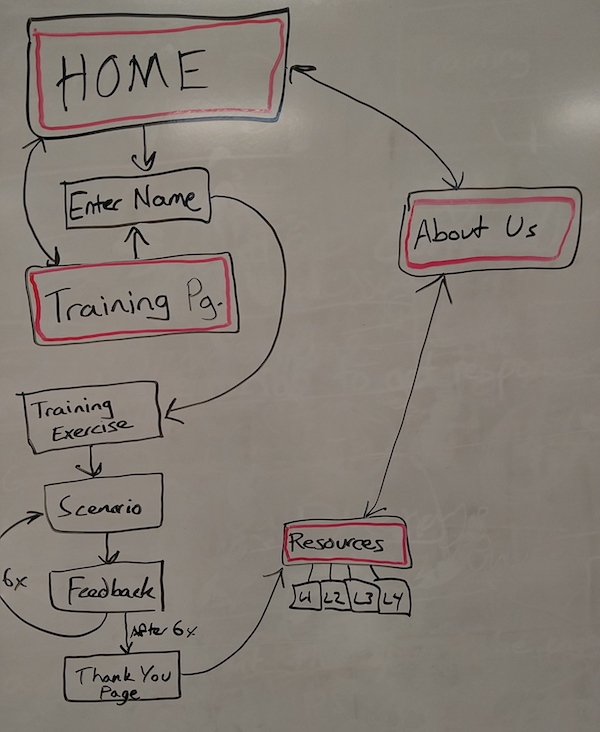 HOME
Enter Name
Training Pg.
About Us
Training
Exercise
Scenario
6x
Feedback
After 6x
Thank You
Page
Resources
L1 L2 L3 L4